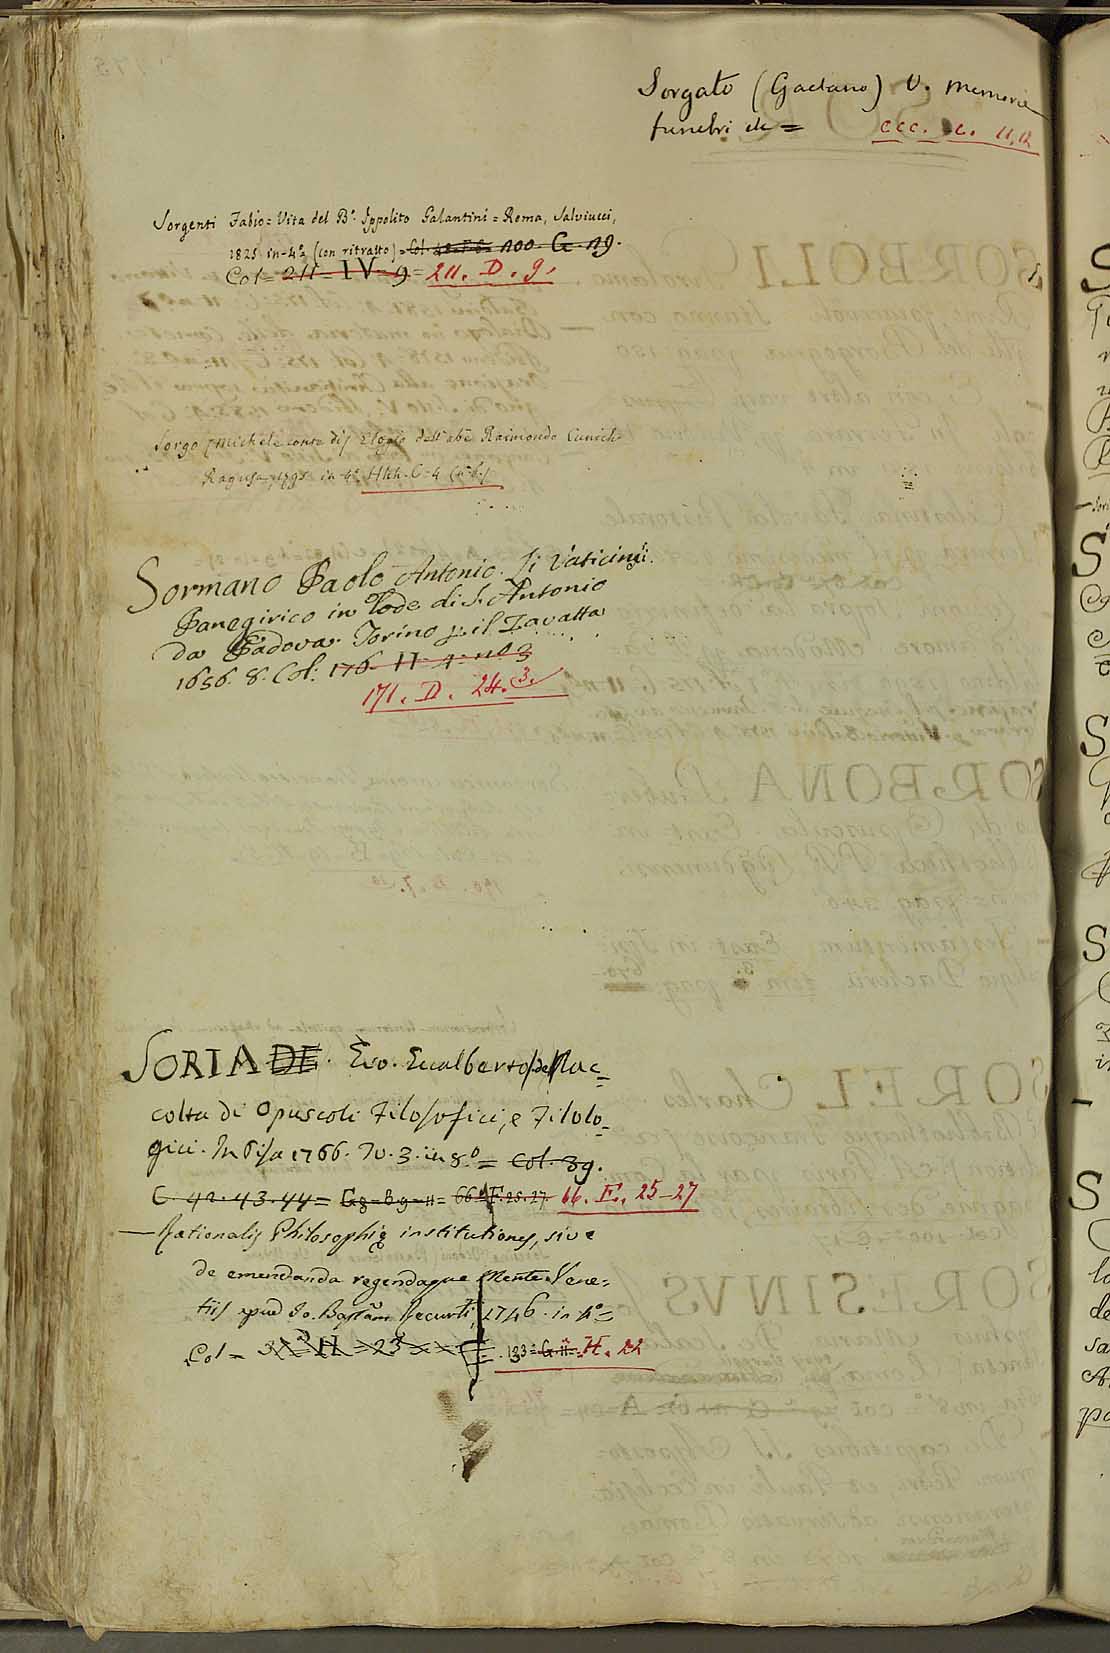 Sorgato (Gaetano) V. Memorie
funebri &c = CCC. C. 11,12
Sorgenti Fabio = Vita del B.º Ippolito Galantini = Roma, Salviucci,
1825 in-4º (con ritratto) = Col. 100. G. 19.
Col = 211 - IV - 9 = 211. D. 9.
Sorgo (Michele conte di) Elogio dell'abe Raimondo Cunich
Ragusa, 1795 in 4º HHH. C. 4 (n. 6.)
Sormano Paolo Antonio. Li Vaticinii.
Panegirico in lode di S. Antonio
da Padova. Torino p. il Zavatta
1656. 8. Col. 176. II. 4. nº 3
171. D. 24. 3.
SORIA DE. Gualberto (De) Rac=
colta di Opuscoli Filosofici, e Filolo=
gici. In Pisa 1766. To. 3. in 8.º = Col. 39.
C. 42. 43. 44 = G g = B. 9 - 11 = 66. F. 25. 27. 66. E. 25-27
— Rationalis Philosophię institutiones, sive
de emendanda regendaque Mente. Vene=
tiis apud Jo. Baptam Recurti, 1746. in 4º =
Col = 133 = G. 11 = H. 22